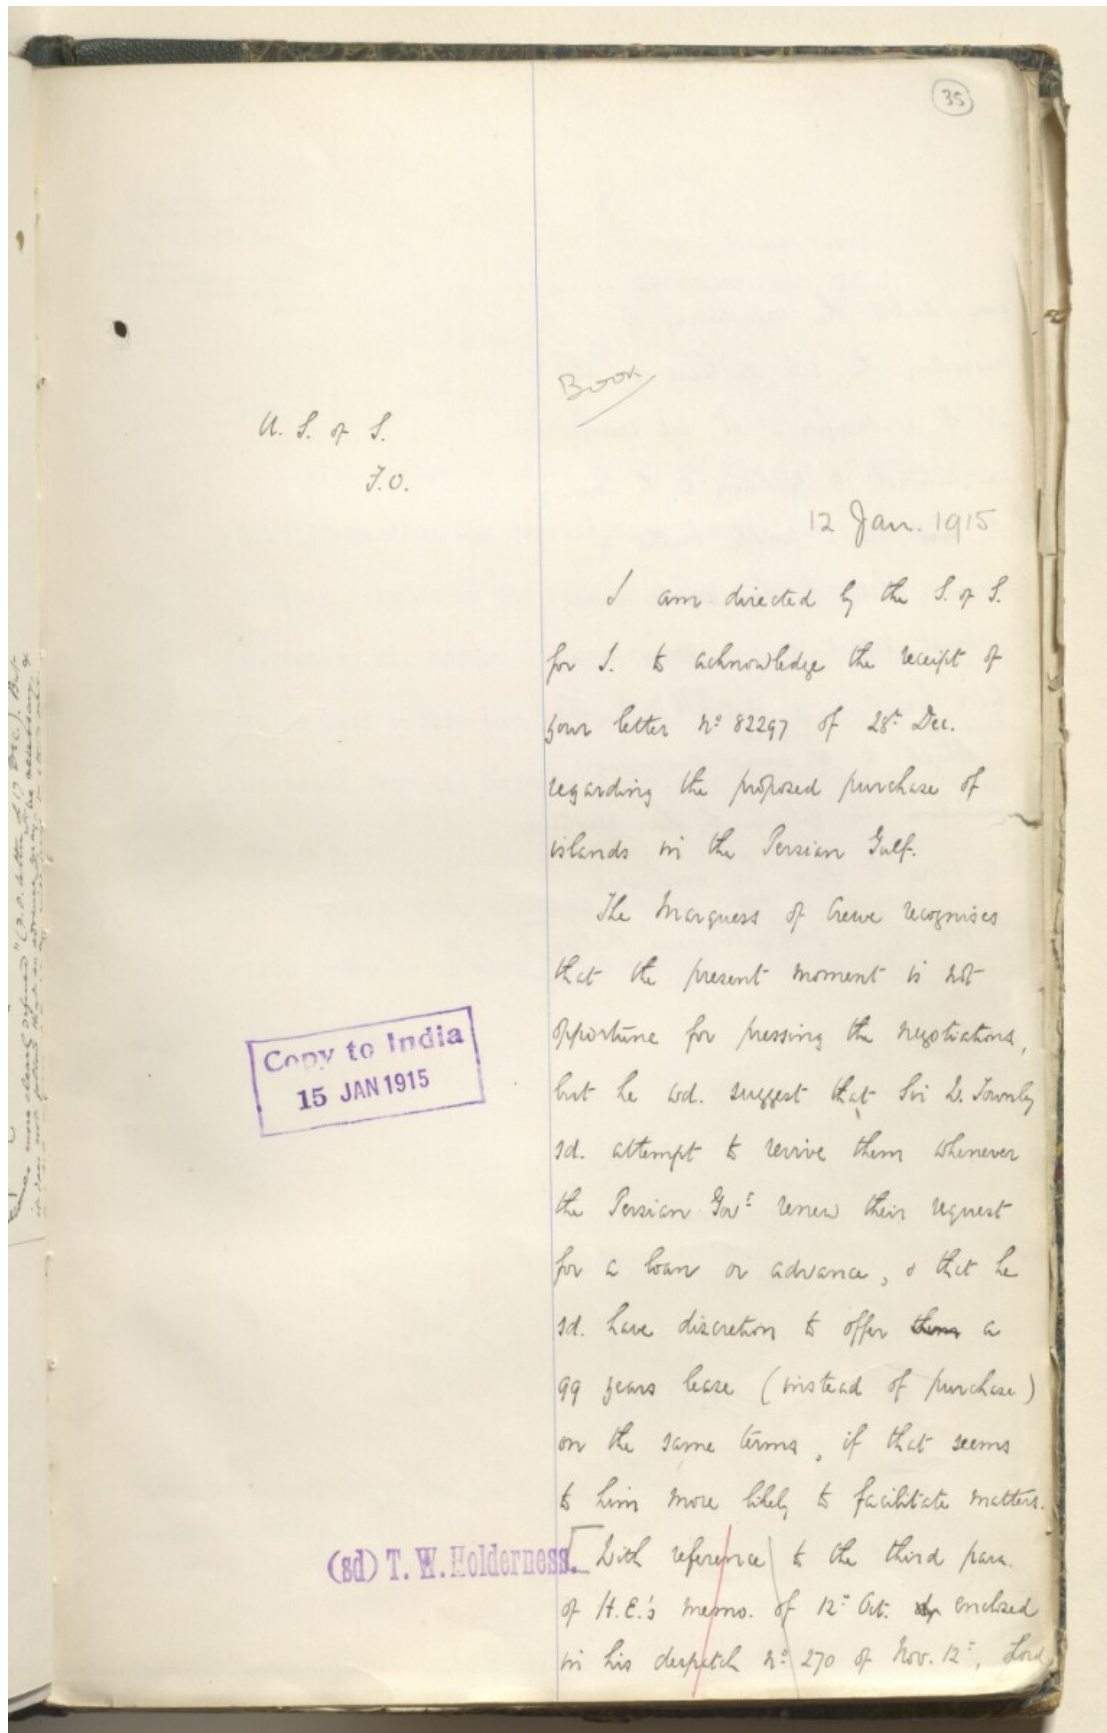 35
Book
U. S. of S.
F.O.
12 Jan. 1915
I am directed by the S. of S.
for I. to acknowledge the receipt of
your letter Nº 82297 of 28th Dec.
regarding the proposed purchase of
islands in the Persian Gulf.
The Marquess of Crewe recognises
that the present moment is not
opportune for pressing the negotiations,
but he wd. suggest that Sir W. Townley
sd. attempt to revive them whenever
the Persian Govt renew their request
for a loan or advance, & that he
sd. have discretion to offer them a
99 years lease (instead of purchase)
on the same terms, if that seems
to him more likely to facilitate matters.
[With reference to the third para.
of H.E.'s memo. of 12th Oct. enclosed
in his despatch Nº 270 of Nov. 12th, Lord
Copy to India
15 JAN 1915
(sd) T. W. Holderness.